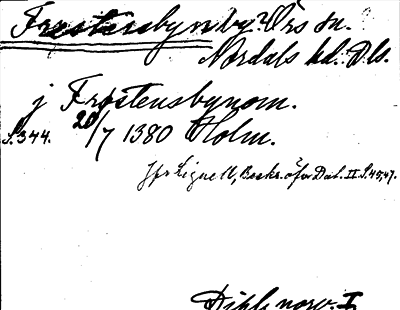 Frestensbyn by? Örs sn.
Nordals hd. Dls.
j Frostensbynom.
S.344. 20/7 1380 Holm.
Jfr Lignell, Beskr. öfver Dal. II S. 45, 47.
Dipl. norv. I